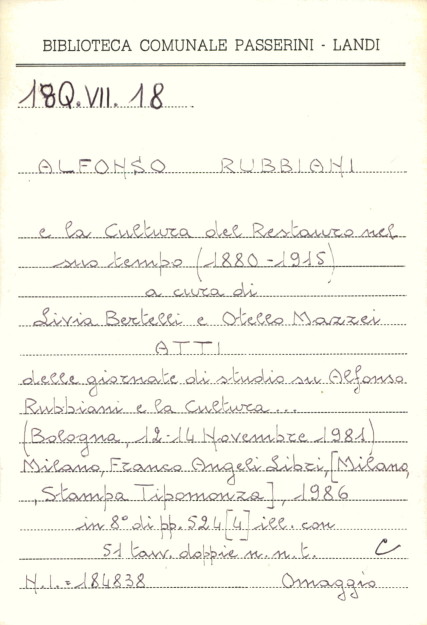 BIBLIOTECA COMUNALE PASSERINI - LANDI
18Q.VII. 18
ALFONSO RUBBIANI
e la Cultura del Restauro nel
suo tempo (1880-1915)
a cura di
Livia Bertelli e Otello Mazzei
ATTI
delle giornate di studio su Alfonso
Rubbiani e la Cultura...
(Bologna, 12-14 Novembre 1981)
Milano, Franco Angeli Libri, [Milano,
, Stampa Tipomonza], 1986
in 8° di pp. 524[4] ill. con
51 tavv. doppie n. n. t. C
N.I. = 184838 Omaggio